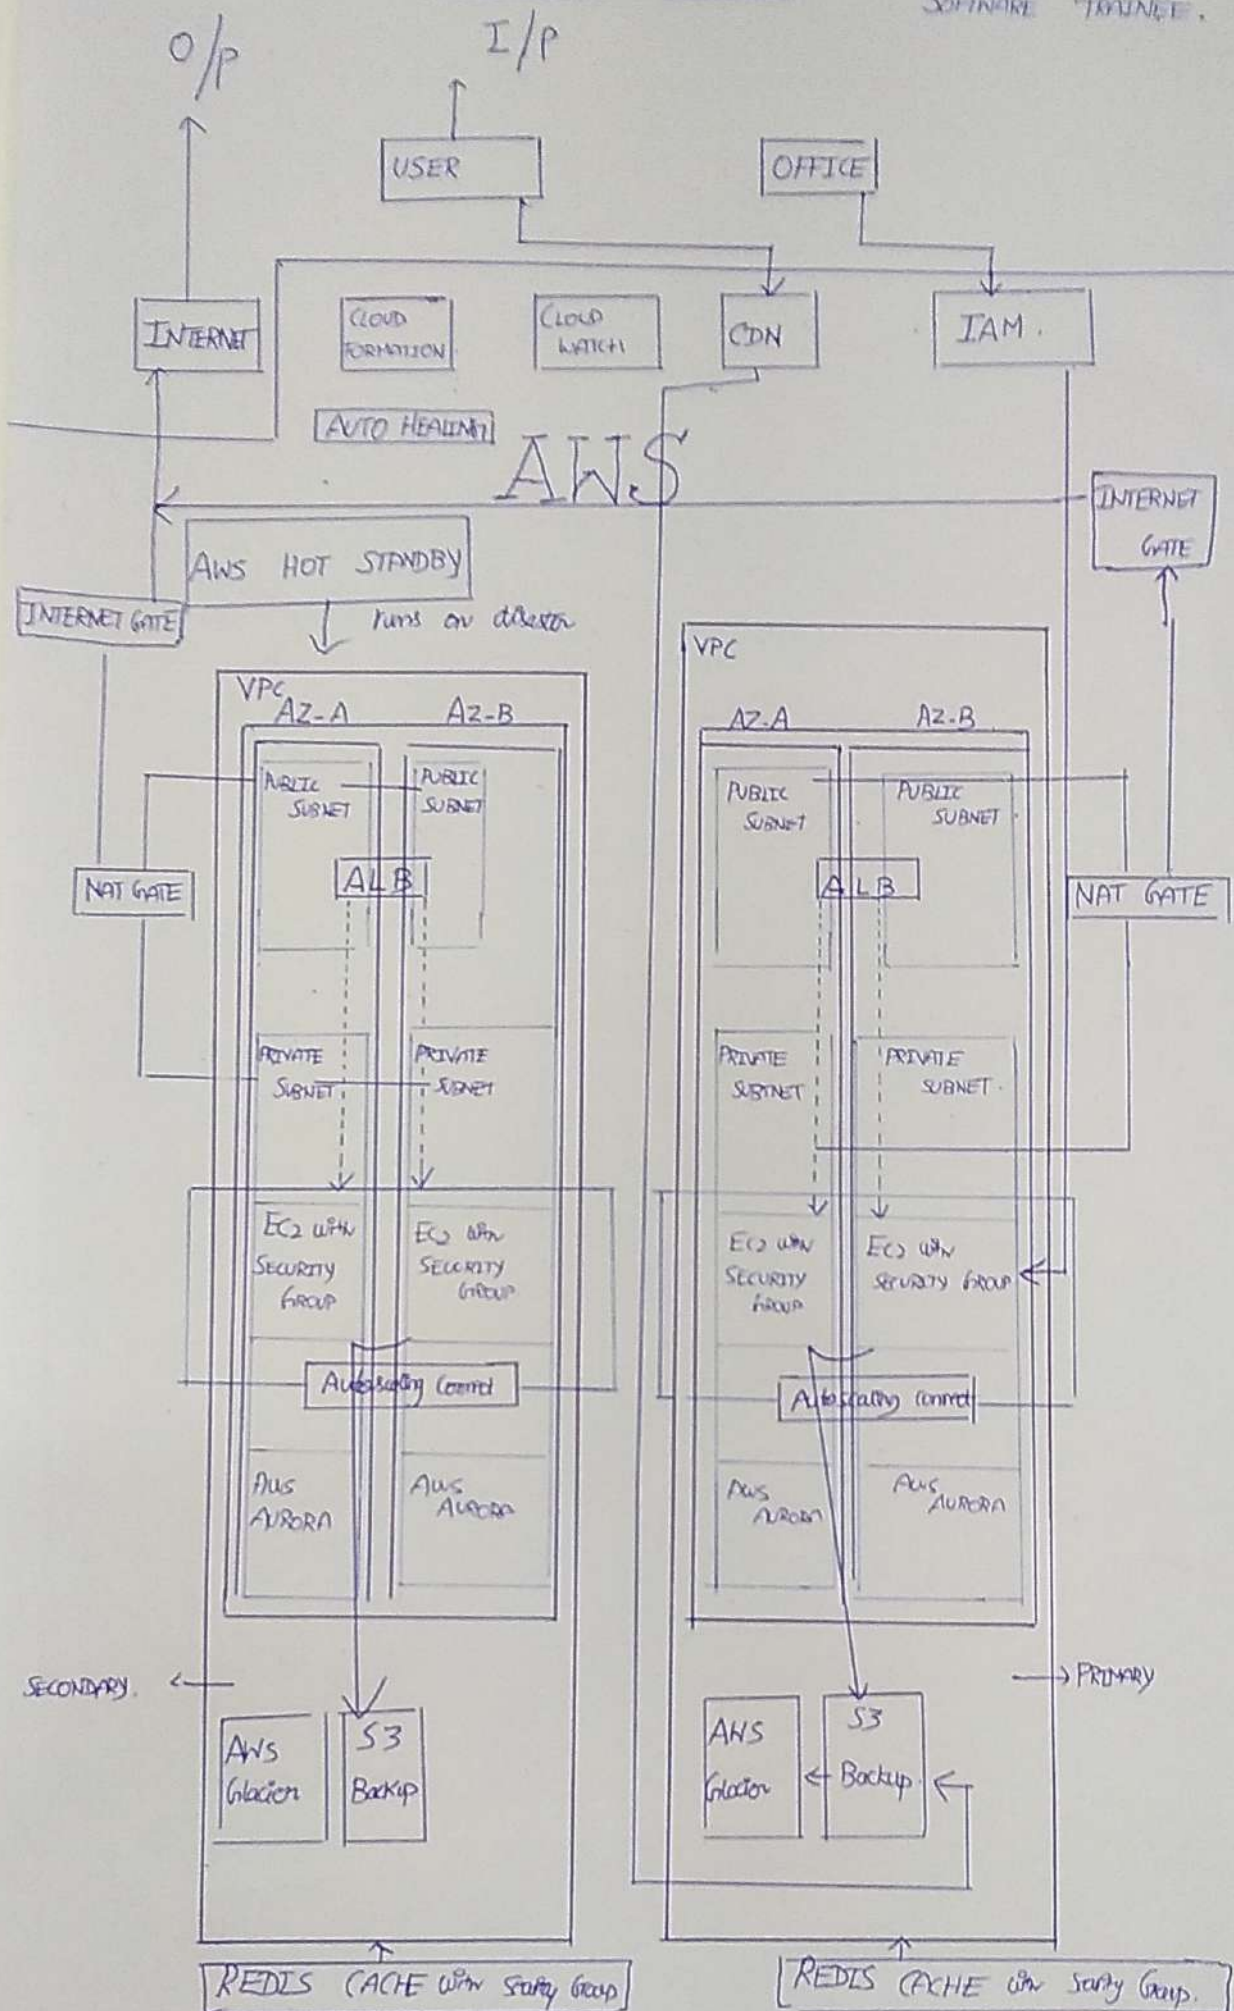 SOFTWARE TRAINEE.
O/P
I/P
USER
OFFICE
INTERNET
CLOUD
FORMATION
CLOUD
WATCH
CDN
IAM.
AUTO HEALING
AWS
INTERNET
GATE
AWS HOT STANDBY
INTERNET GATE
runs on
VPC
AZ-A
AZ-B
PUBLIC
SUBNET
PUBLIC
SUBNET
ALB
NAT GATE
PRIVATE
SUBNET
PRIVATE
SUBNET
EC2 with
SECURITY
GROUP
EC2 with
SECURITY
GROUP
Autoscaling
AWS
AURORA
AWS
AURORA
SECONDARY.
AWS
Glacier
S3
Backup
REDIS CACHE with Group
VPC
AZ-A
AZ-B
PUBLIC
SUBNET
PUBLIC
SUBNET
ALB
NAT GATE
PRIVATE
SUBTNET
PRIVATE
SUBNET.
EC2 with
SECURITY
GROUP
EC2 with
SECURITY GROUP
Autoscaling
AWS
AURORA
AWS
AURORA
PRIMARY
AWS
Glacier
S3
Backup
REDIS CACHE with Group.